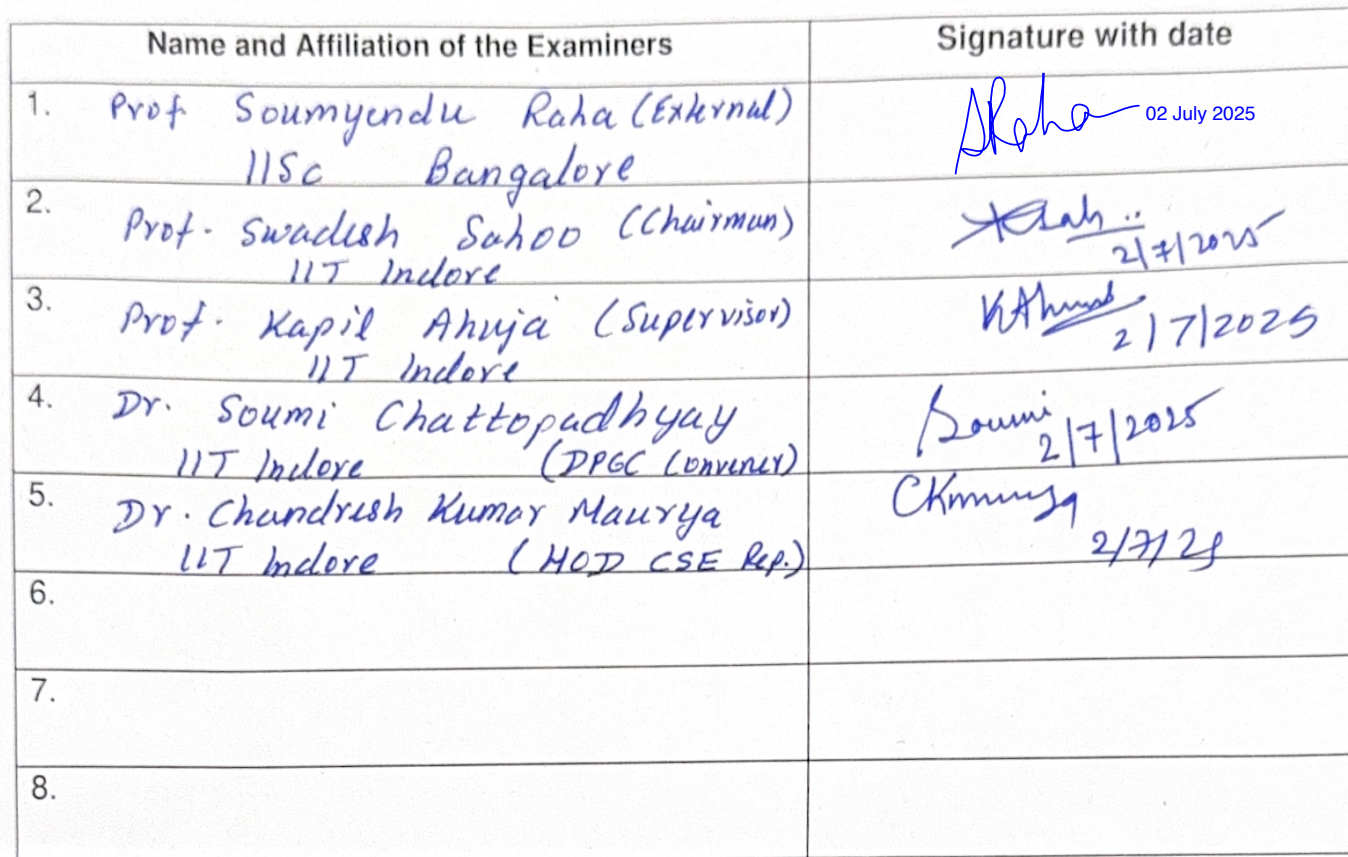 Name and Affiliation of the Examiners
Signature with date
1. Prof Soumyendu Raha (External)
IISc Bangalore
SRaha 02 July 2025
2. Prof. Swadesh Sahoo (Chairman)
IIT Indore
2/7/2025
3. Prof. Kapil Ahuja (Supervisor)
IIT Indore
KAhuja
2/7/2025
4. Dr. Soumi Chattopadhyay
IIT Indore (DPGC Convener)
Soumi
2/7/2025
5. Dr. Chandresh Kumar Maurya
IIT Indore (HOD CSE Rep.)
2/7/25
6.
7.
8.